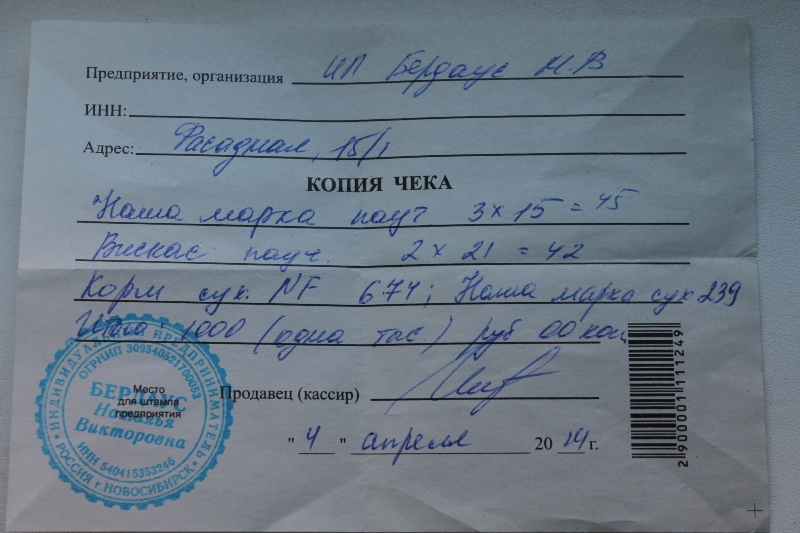 Предприятие, организация ИП Бердаус Н.В
ИНН:
Адрес: Фасадная, 15/1
КОПИЯ ЧЕКА
Наша марка пауч 3 х 15 = 45
Вискас пауч. 2 х 21 = 42
Корм сух. NF 674; Наша марка сух 239
Итого: 1000 (одна тыс.) руб 00 коп
Место
для штампа
предприятия
ИНДИВИДУАЛЬНЫЙ ПРЕДПРИНИМАТЕЛЬ
ОГРНИП 309540521700093
БЕРДАУС
Наталья
Викторовна
ИНН 540415353246
РОССИЯ г. НОВОСИБИРСК
Продавец (кассир)
" 4 " апреля 2014 г.
2 900001 111249